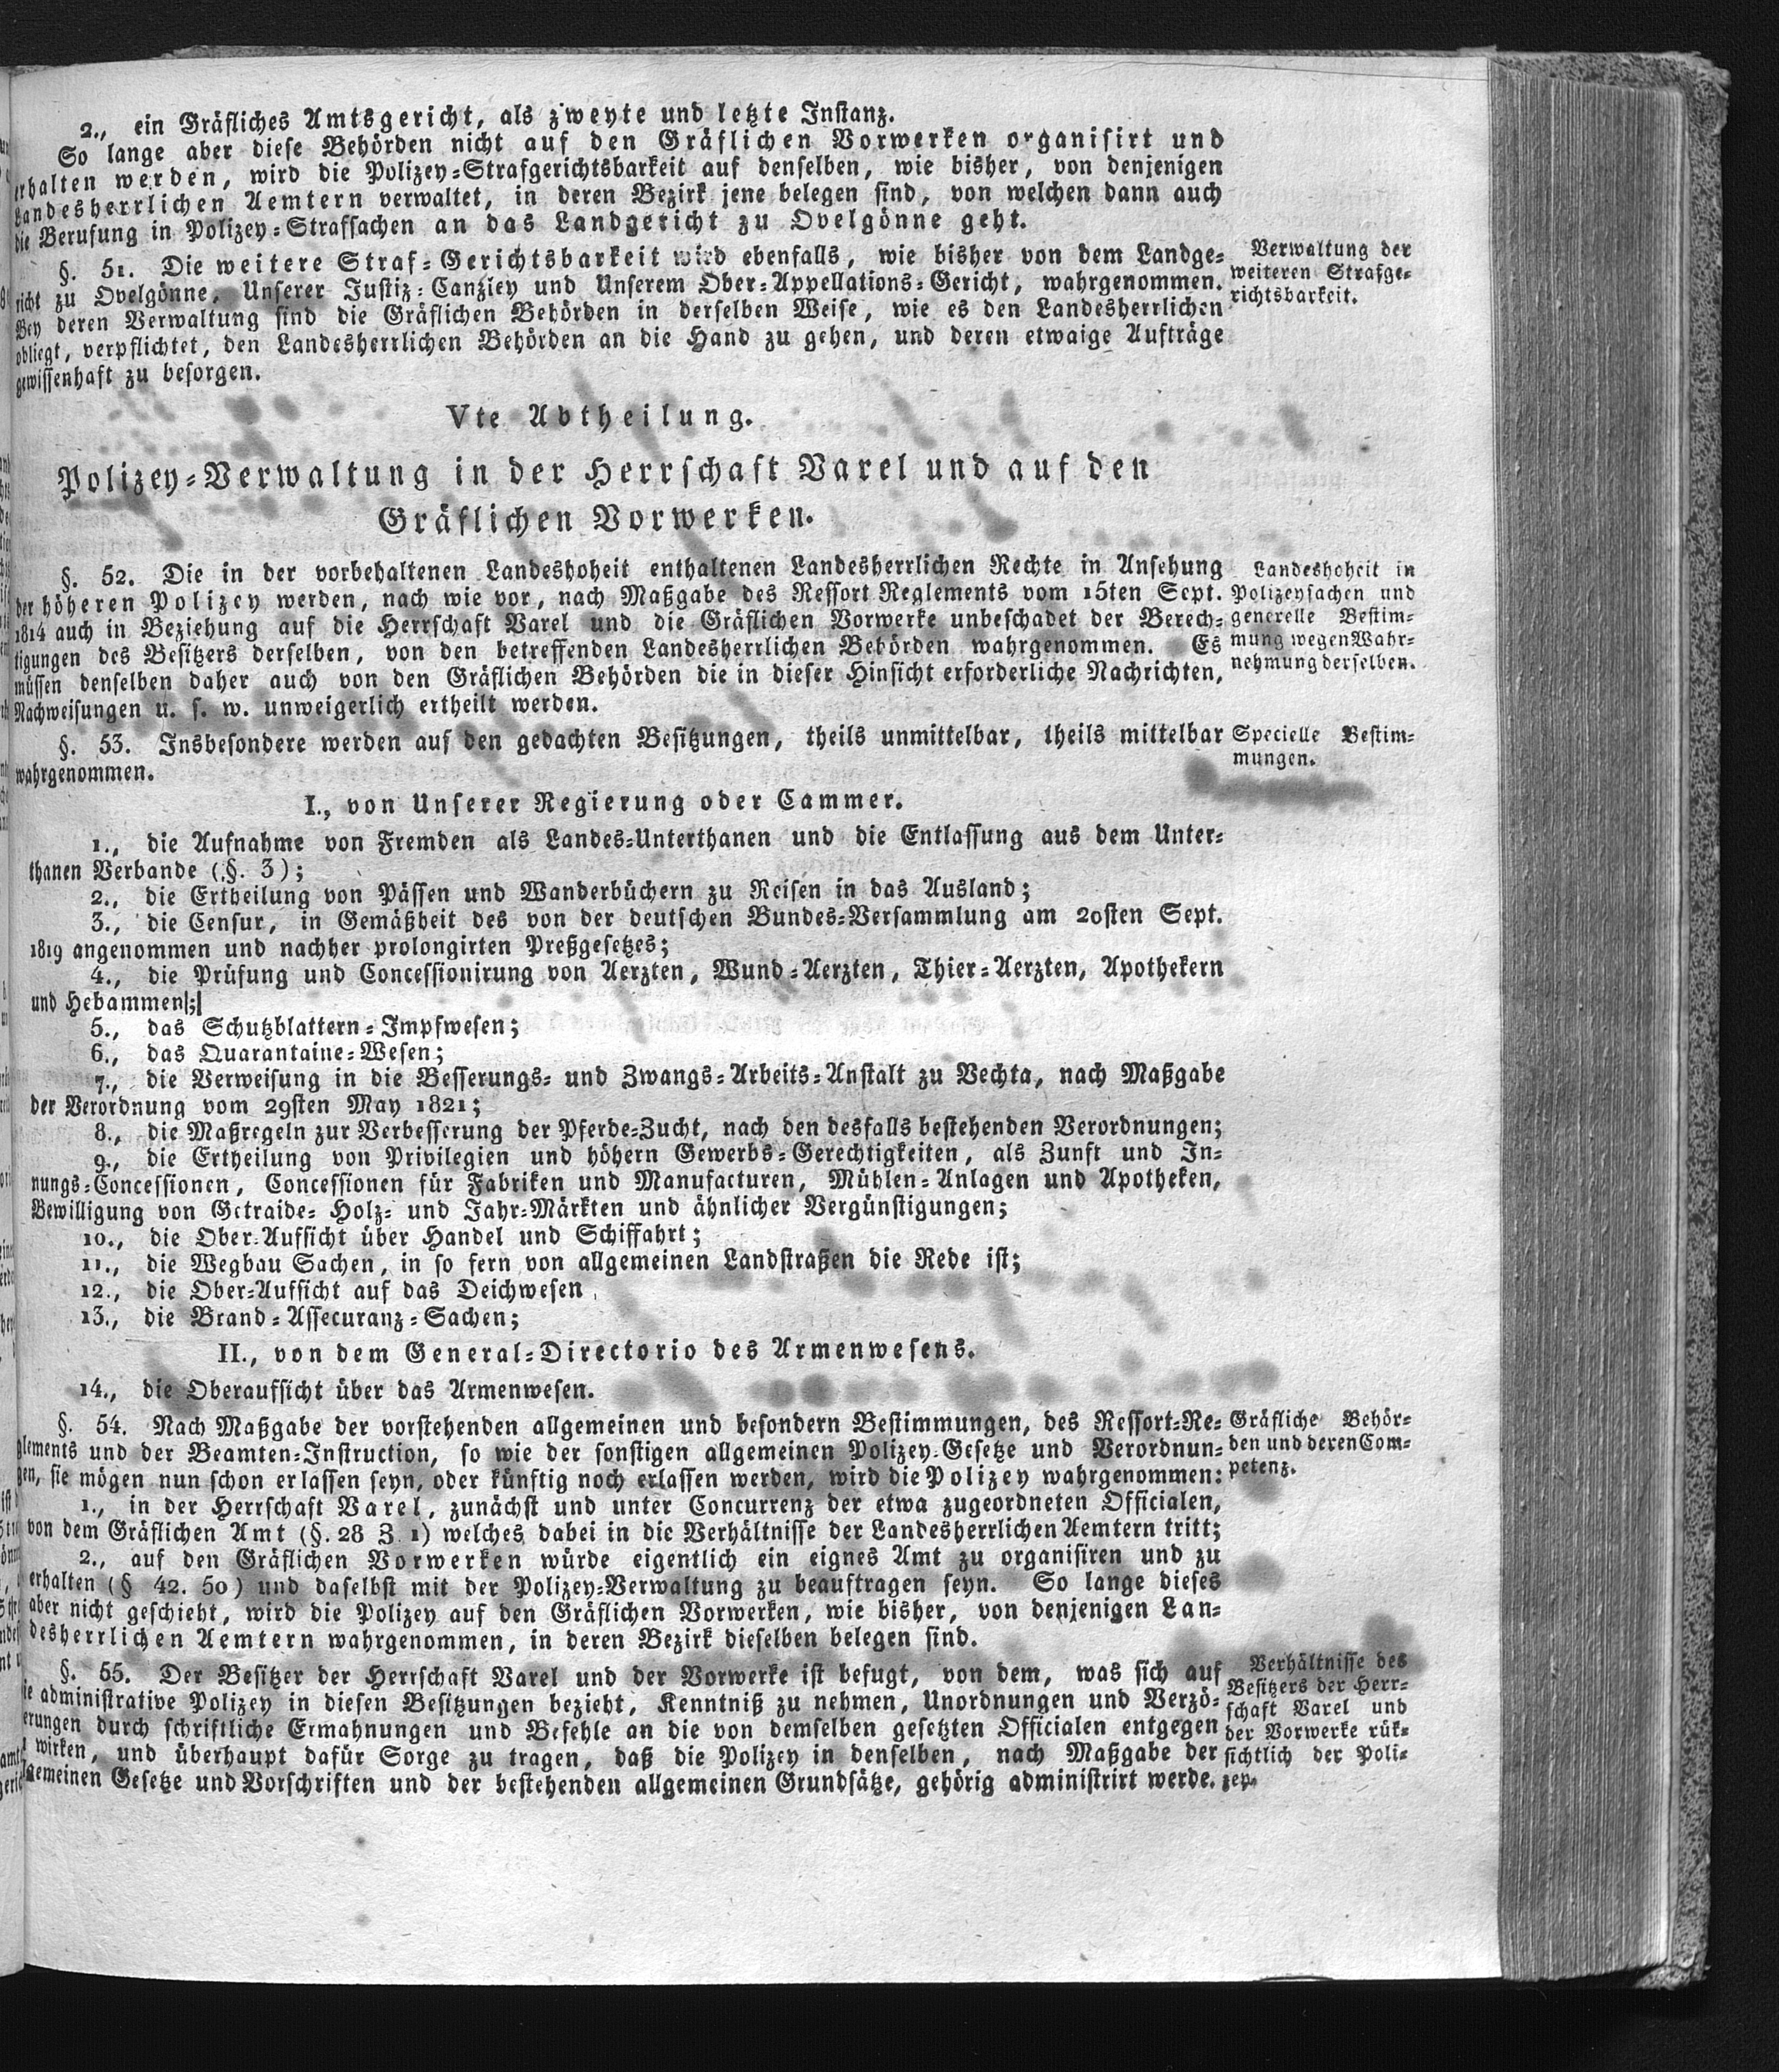 2., ein Gräfliches Amtsgericht, als zweyte und letzte Instanz.
So lange aber diese Behörden nicht auf den Gräflichen Vorwerken organisirt und
erhalten werden, wird die Polizey-Strafgerichtsbarkeit auf denselben, wie bisher, von denjenigen
Landesherrlichen Aemtern verwaltet, in deren Bezirk jene belegen sind, von welchen dann auch
die Berufung in Polizey-Strafsachen an das Landgericht zu Ovelgönne geht.
§. 51. Die weitere Straf-Gerichtsbarkeit wird ebenfalls, wie bisher von dem Landge-
richt zu Ovelgönne, Unserer Justiz-Canzley und Unserem Ober-Appellations-Gericht, wahrgenommen.
Bey deren Verwaltung sind die Gräflichen Behörden in derselben Weise, wie es den Landesherrlichen
obliegt, verpflichtet, den Landesherrlichen Behörden an die Hand zu gehen, und deren etwaige Aufträge
gewissenhaft zu besorgen.
Verwaltung der
weiteren Strafge-
richtsbarkeit.
Vte Abtheilung.
Polizey-Verwaltung in der Herrschaft Varel und auf den
Gräflichen Vorwerken.
§. 52. Die in der vorbehaltenen Landeshoheit enthaltenen Landesherrlichen Rechte in Ansehung
der höheren Polizey werden, nach wie vor, nach Maßgabe des Ressort Reglements vom 15ten Sept.
1814 auch in Beziehung auf die Herrschaft Varel und die Gräflichen Vorwerke unbeschadet der Berech-
tigungen des Besitzers derselben, von den betreffenden Landesherrlichen Behörden wahrgenommen. Es
müssen denselben daher auch von den Gräflichen Behörden die in dieser Hinsicht erforderliche Nachrichten,
Nachweisungen u. s. w. unweigerlich ertheilt werden.
Landeshoheit in
Polizeysachen und
generelle Bestim-
mung wegen Wahr-
nehmung derselben.
§. 53. Insbesondere werden auf den gedachten Besitzungen, theils unmittelbar, theils mittelbar
wahrgenommen.
Specielle Bestim-
mungen.
I., von Unserer Regierung oder Cammer.
1., die Aufnahme von Fremden als Landes-Unterthanen und die Entlassung aus dem Unter-
thanen Verbande (§. 3);
2., die Ertheilung von Pässen und Wanderbüchern zu Reisen in das Ausland;
3., die Censur, in Gemäßheit des von der deutschen Bundes-Versammlung am 20sten Sept.
1819 angenommen und nachher prolongirten Preßgesetzes;
4., die Prüfung und Concessionirung von Aerzten, Wund-Aerzten, Thier-Aerzten, Apothekern
und Hebammen;
5., das Schutzblattern-Impfwesen;
6., das Quarantaine-Wesen;
7., die Verweisung in die Besserungs- und Zwangs-Arbeits-Anstalt zu Vechta, nach Maßgabe
der Verordnung vom 29sten May 1821;
8., die Maßregeln zur Verbesserung der Pferde-Zucht, nach den desfalls bestehenden Verordnungen;
9., die Ertheilung von Privilegien und höhern Gewerbs-Gerechtigkeiten, als Zunft und In-
nungs-Concessionen, Concessionen für Fabriken und Manufacturen, Mühlen-Anlagen und Apotheken,
Bewilligung von Getraide- Holz- und Jahr-Märkten und ähnlicher Vergünstigungen;
10., die Ober-Aufsicht über Handel und Schiffahrt;
11., die Wegbau Sachen, in so fern von allgemeinen Landstraßen die Rede ist;
12., die Ober-Aufsicht auf das Deichwesen
13., die Brand-Assecuranz-Sachen;
II., von dem General-Directorio des Armenwesens.
14., die Oberaufsicht über das Armenwesen.
§. 54. Nach Maßgabe der vorstehenden allgemeinen und besondern Bestimmungen, des Ressort-Re-
glements und der Beamten-Instruction, so wie der sonstigen allgemeinen Polizey-Gesetze und Verordnun-
gen, sie mögen nun schon erlassen seyn, oder künftig noch erlassen werden, wird die Polizey wahrgenommen:
Gräfliche Behör-
den und deren Com-
petenz.
1., in der Herrschaft Varel, zunächst und unter Concurrenz der etwa zugeordneten Officialen,
von dem Gräflichen Amt (§. 28 Z 1) welches dabei in die Verhältnisse der Landesherrlichen Aemtern tritt;
2., auf den Gräflichen Vorwerken würde eigentlich ein eignes Amt zu organisiren und zu
erhalten (§ 42. 50) und daselbst mit der Polizey-Verwaltung zu beauftragen seyn. So lange dieses
aber nicht geschieht, wird die Polizey auf den Gräflichen Vorwerken, wie bisher, von denjenigen Lan-
desherrlichen Aemtern wahrgenommen, in deren Bezirk dieselben belegen sind.
§. 55. Der Besitzer der Herrschaft Varel und der Vorwerke ist befugt, von dem, was sich auf
die administrative Polizey in diesen Besitzungen bezieht, Kenntniß zu nehmen, Unordnungen und Verzö-
gerungen durch schriftliche Ermahnungen und Befehle an die von demselben gesetzten Officialen entgegen
wirken, und überhaupt dafür Sorge zu tragen, daß die Polizey in denselben, nach Maßgabe der
allgemeinen Gesetze und Vorschriften und der bestehenden allgemeinen Grundsätze, gehörig administrirt werde.
Verhältnisse des
Besitzers der Herr-
schaft Varel und
der Vorwerke rük-
sichtlich der Poli-
zey.